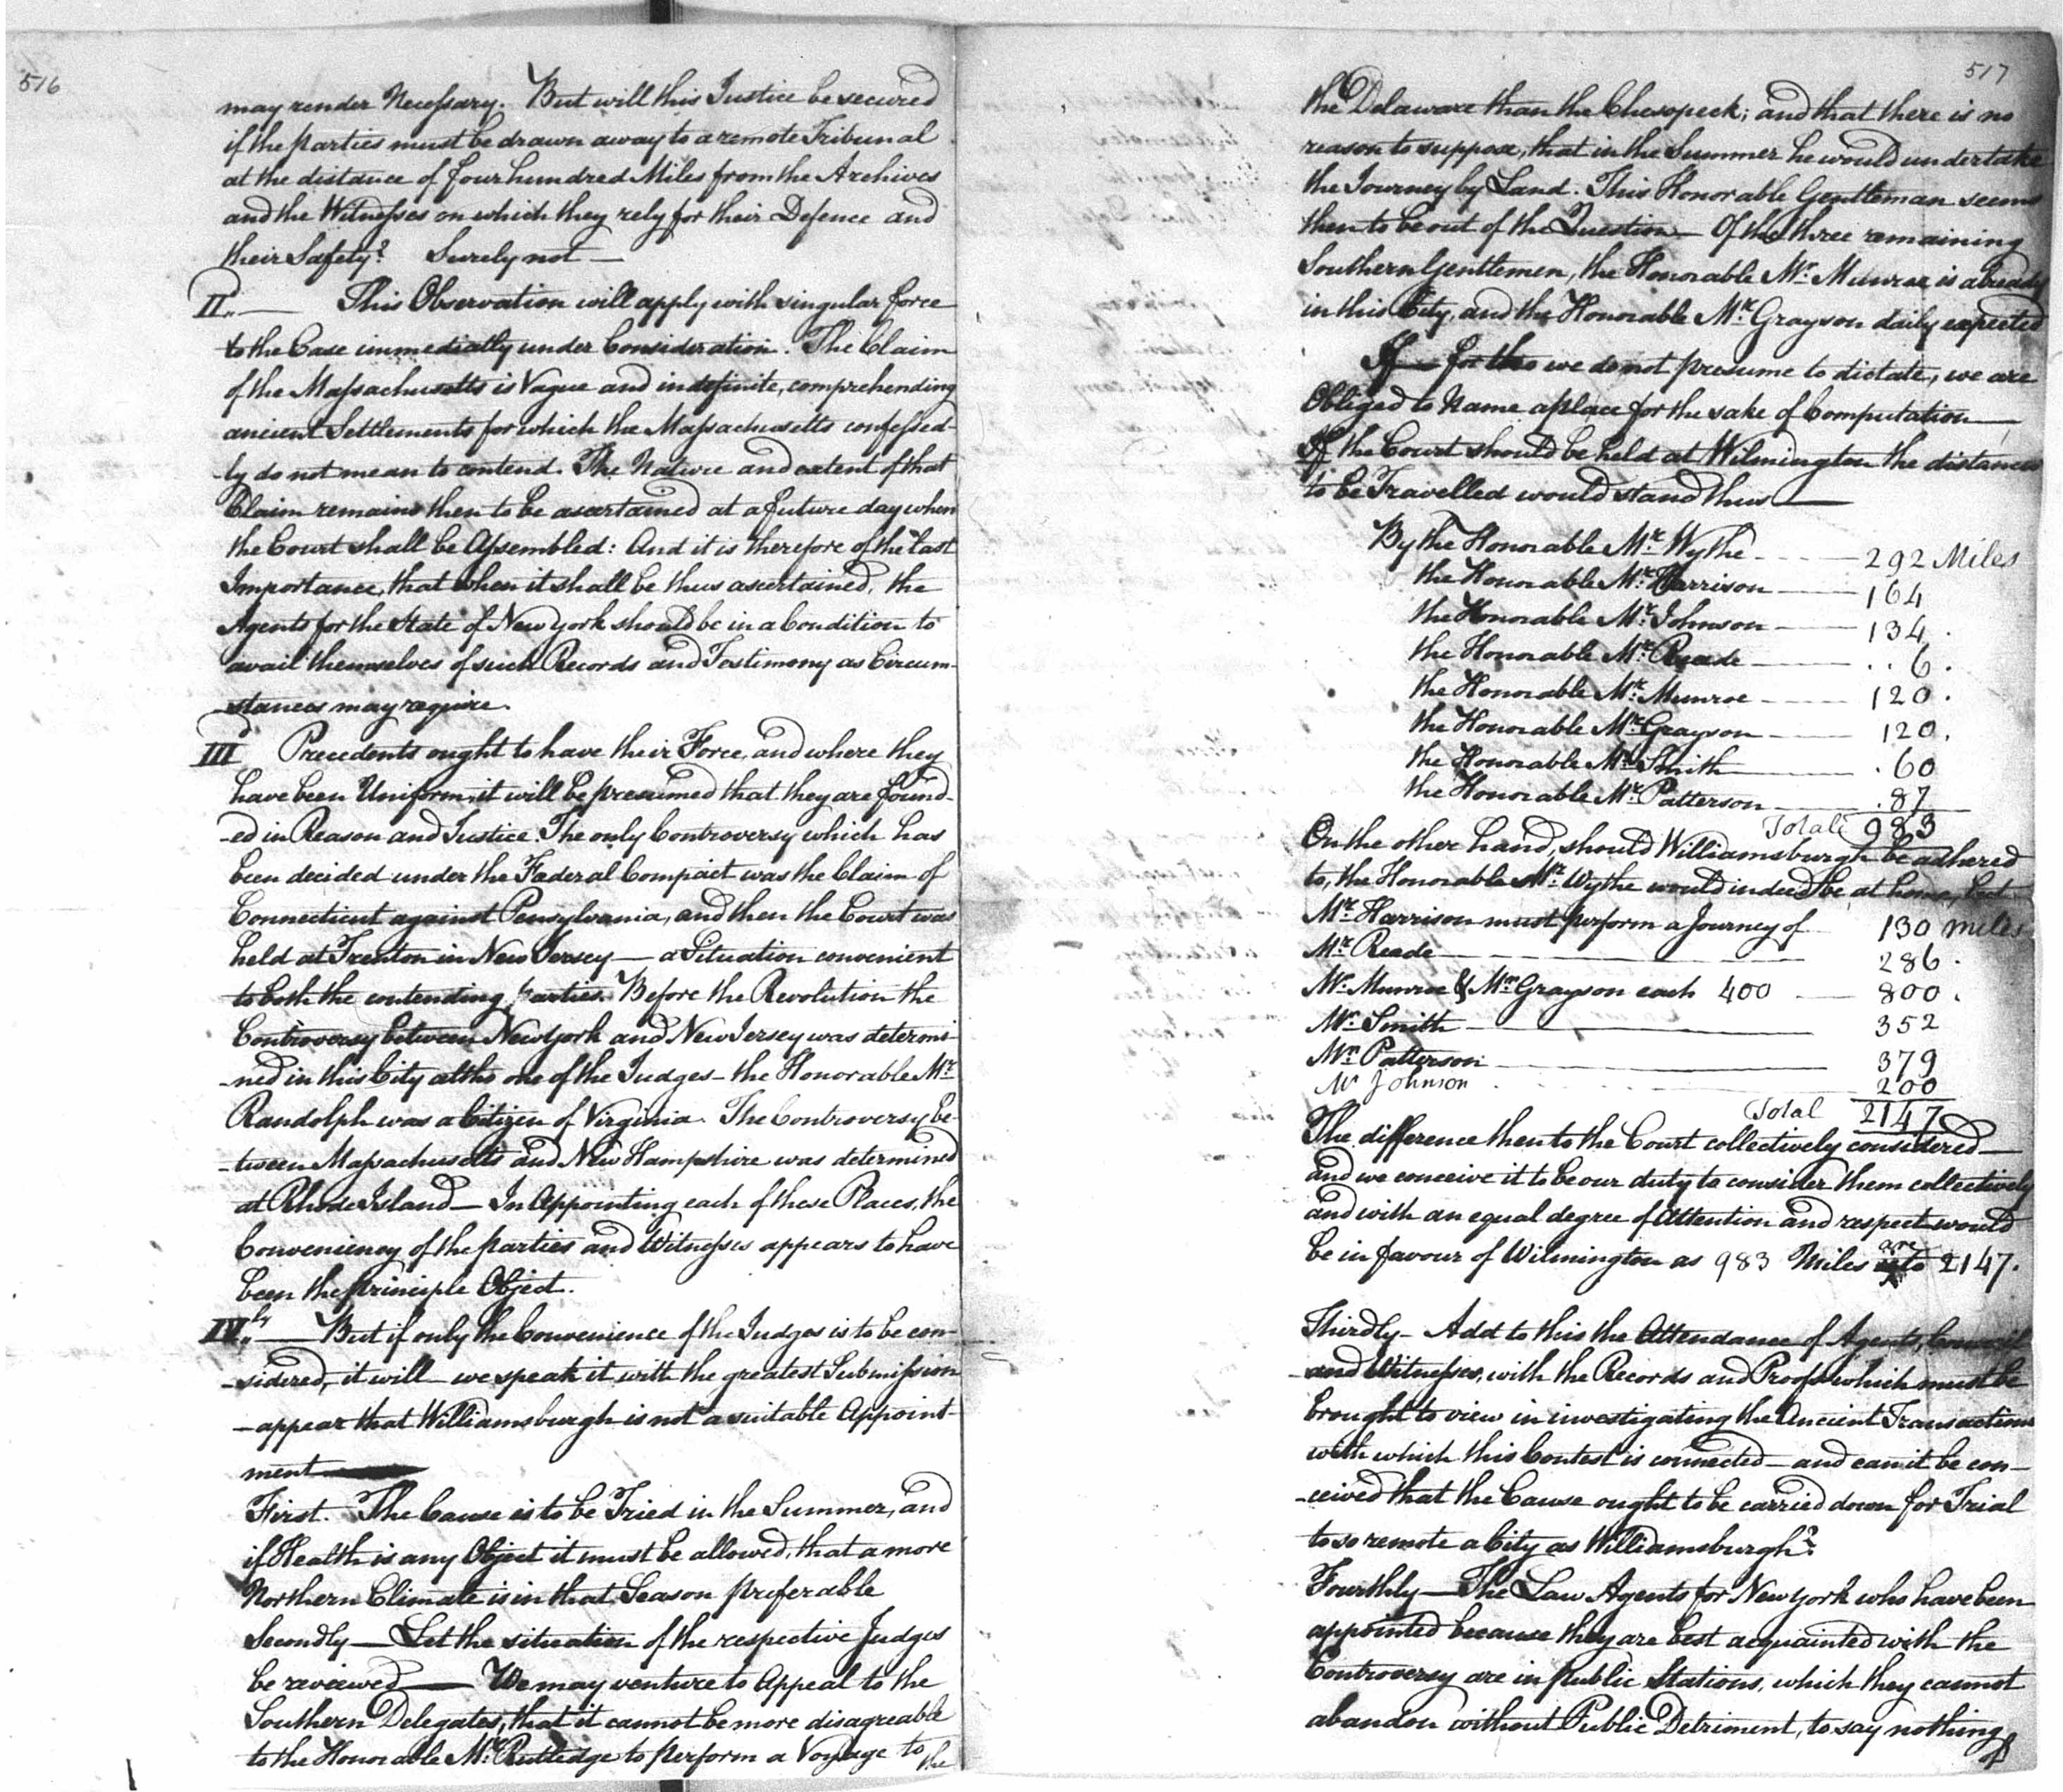 516
may render Necessary. But will this Justice be secured
if the parties must be drawn away to a remote Tribunal
at the distance of four hundred Miles from the Archives
and the Witnesses on which they rely for their Defence and
their Safety? Surely not —
II.. — This Observation will apply with singular force
to the Case immedially under Consideration. The Claim
of the Massachusetts is Vague and indefinite, comprehending
ancient Settlements for which the Massachusetts confessed-
-ly do not mean to contend. The Nature and extent of that
Claim remains then to be ascertained at a future day when
the Court shall be Assembled: And it is therefore of the last
Importance, that when it shall be thus ascertained, the
Agents for the State of New York should be in a Condition to
avail themselves of such Records and Testimony as Circum-
-stances may require.
III Precedents ought to have their Force, and where they
have been Uniform, it will be presumed that they are found-
-ed in Reason and Justice. The only Controversy which has
been decided under the Fæderal Compact was the Claim of
Connecticut against Pensylvania, and then the Court was
held at Trenton in New Jersey — a Situation convenient
to both the contending parties. Before the Revolution the
Controversy between New York and New Jersey was determi-
-ned in this City altho one of the Judges – the Honorable Mr.
Randolph was a Citizen of Virginia. The Controversy be-
-tween Massachusetts and New Hampshire was determined
at Rhode Island — In Appointing each of these Places, the
Conveniency of the parties and Witnesses appears to have
been the principle Object.
IV..ly — But if only the Convenience of the Judges is to be con-
-sidered, it will – we speak it with the greatest Submission
– appear that Williamsburgh is not a suitable Appoint-
ment —
First. The Cause is to be Tried in the Summer, and
if Health is any Object it must be allowed, that a more
Northern Climate is in that Season preferable
Secondly — Let the situation of the respective Judges
be reviewed — We may venture to Appeal to the
Southern Delegates, that it cannot be more disagreable
to the Honorable Mr. Rutledge to perform a Voyage to
the
517
the Delaware than the Chesopeek; and that there is no
reason to suppose, that in the Summer he would undertake
the Journey by Land. This Honorable Gentleman seems
then to be out of the Question — Of the three remaining
Southern Gentlemen, the Honorable Mr. Munroe is already
in this City, and the Honorable Mr. Grayson daily expected
If — for tho we do not presume to dictate, we are
Obliged to Name a place for the sake of Computation —
If the Court should be held at Wilmington the distances
to be Travelled would stand thus —
By the Honorable Mr. Wythe - - - - 292 Miles
the Honorable Mr. Harrison — 164
the Honorable Mr. Johnson — 134.
the Honorable Mr. Reade — . . 6.
the Honorable Mr. Munroe — 120.
the Honorable Mr. Grayson — 120.
the Honorable Mr. Smith — .60
the Honorable Mr. Patterson — .87
Total 983
On the other hand, should Williamsburgh be adhered
to, the Honorable Mr. Wythe would indeed be, at home, but
Mr. Harrison must perform a Journey of 130 miles
Mr. Reade — 286.
Mr. Munroe & Mr. Grayson each 400 — 800.
Mr. Smith — 352
Mr. Patterson — 379
Mr Johnson 200
Total 2147
The difference then to the Court collectively considered —
and we conceive it to be our duty to consider them collectively
and with an equal degree of Attention and respect would
are
be in favour of Wilmington as 983 Miles to 2147.
Thirdly – Add to this the Attendance of Agents, Council
and Witnesses, with the Records and Proofs which must be
brought to view in investigating the Ancient Transactions
with which this Contest is connected – and can it be con-
-ceived that the Cause ought to be carried down for Trial
to so remote a City as Williamsburgh?
Fourthly — The Law Agents for New York who have been
appointed because they are best acquainted with the
Controversy are in public Stations, which they cannot
abandon without Public Detriment, to say nothing
of